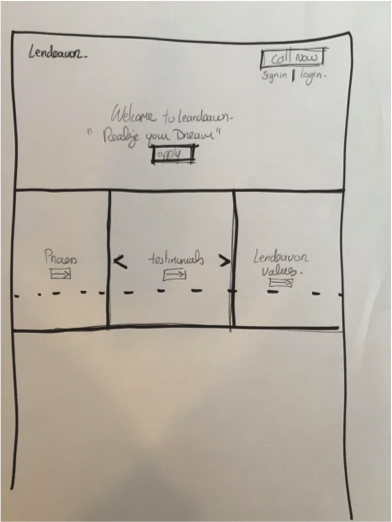 Lendeavor.
Call Now
Signin | login.
Welcome to leandeavn.
"Realize your Dream"
apply
Process
testimonials
Lendeavor
values.